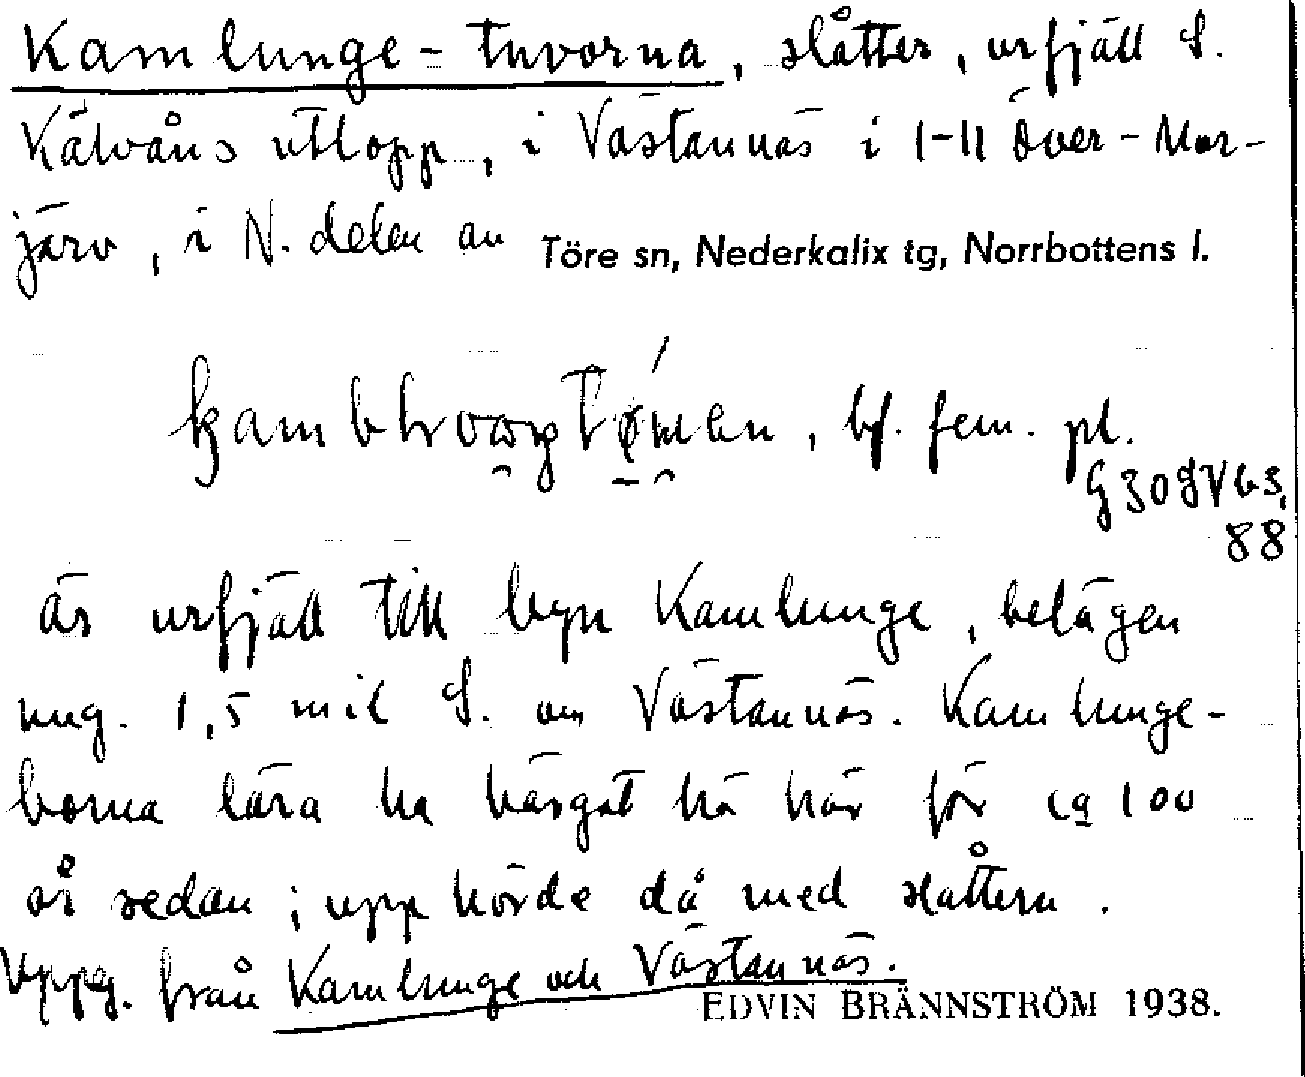 Kamlunge-tuvorna, slåtter, urfjäll S.
Kälvåns utlopp, i Västannäs i 1-11 Över-Mor-
järv, i N. delen av Töre sn, Nederkalix tg, Norrbottens l.
bf. fem. pl.
88
är urfjäll till byn Kamlunge, belägen
ung. 1,5 mil S. om Västannäs. Kamlunge-
borna lära ha bärgat hö här för ca 100
år sedan; upphörde då med slåttern.
Uppg. från Kamlunge och Västannäs.
EDVIN BRÄNNSTRÖM 1938.